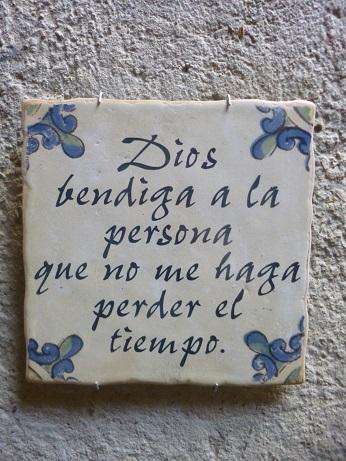 Dios
bendiga a la
persona
que no me haga
perder el
tiempo.